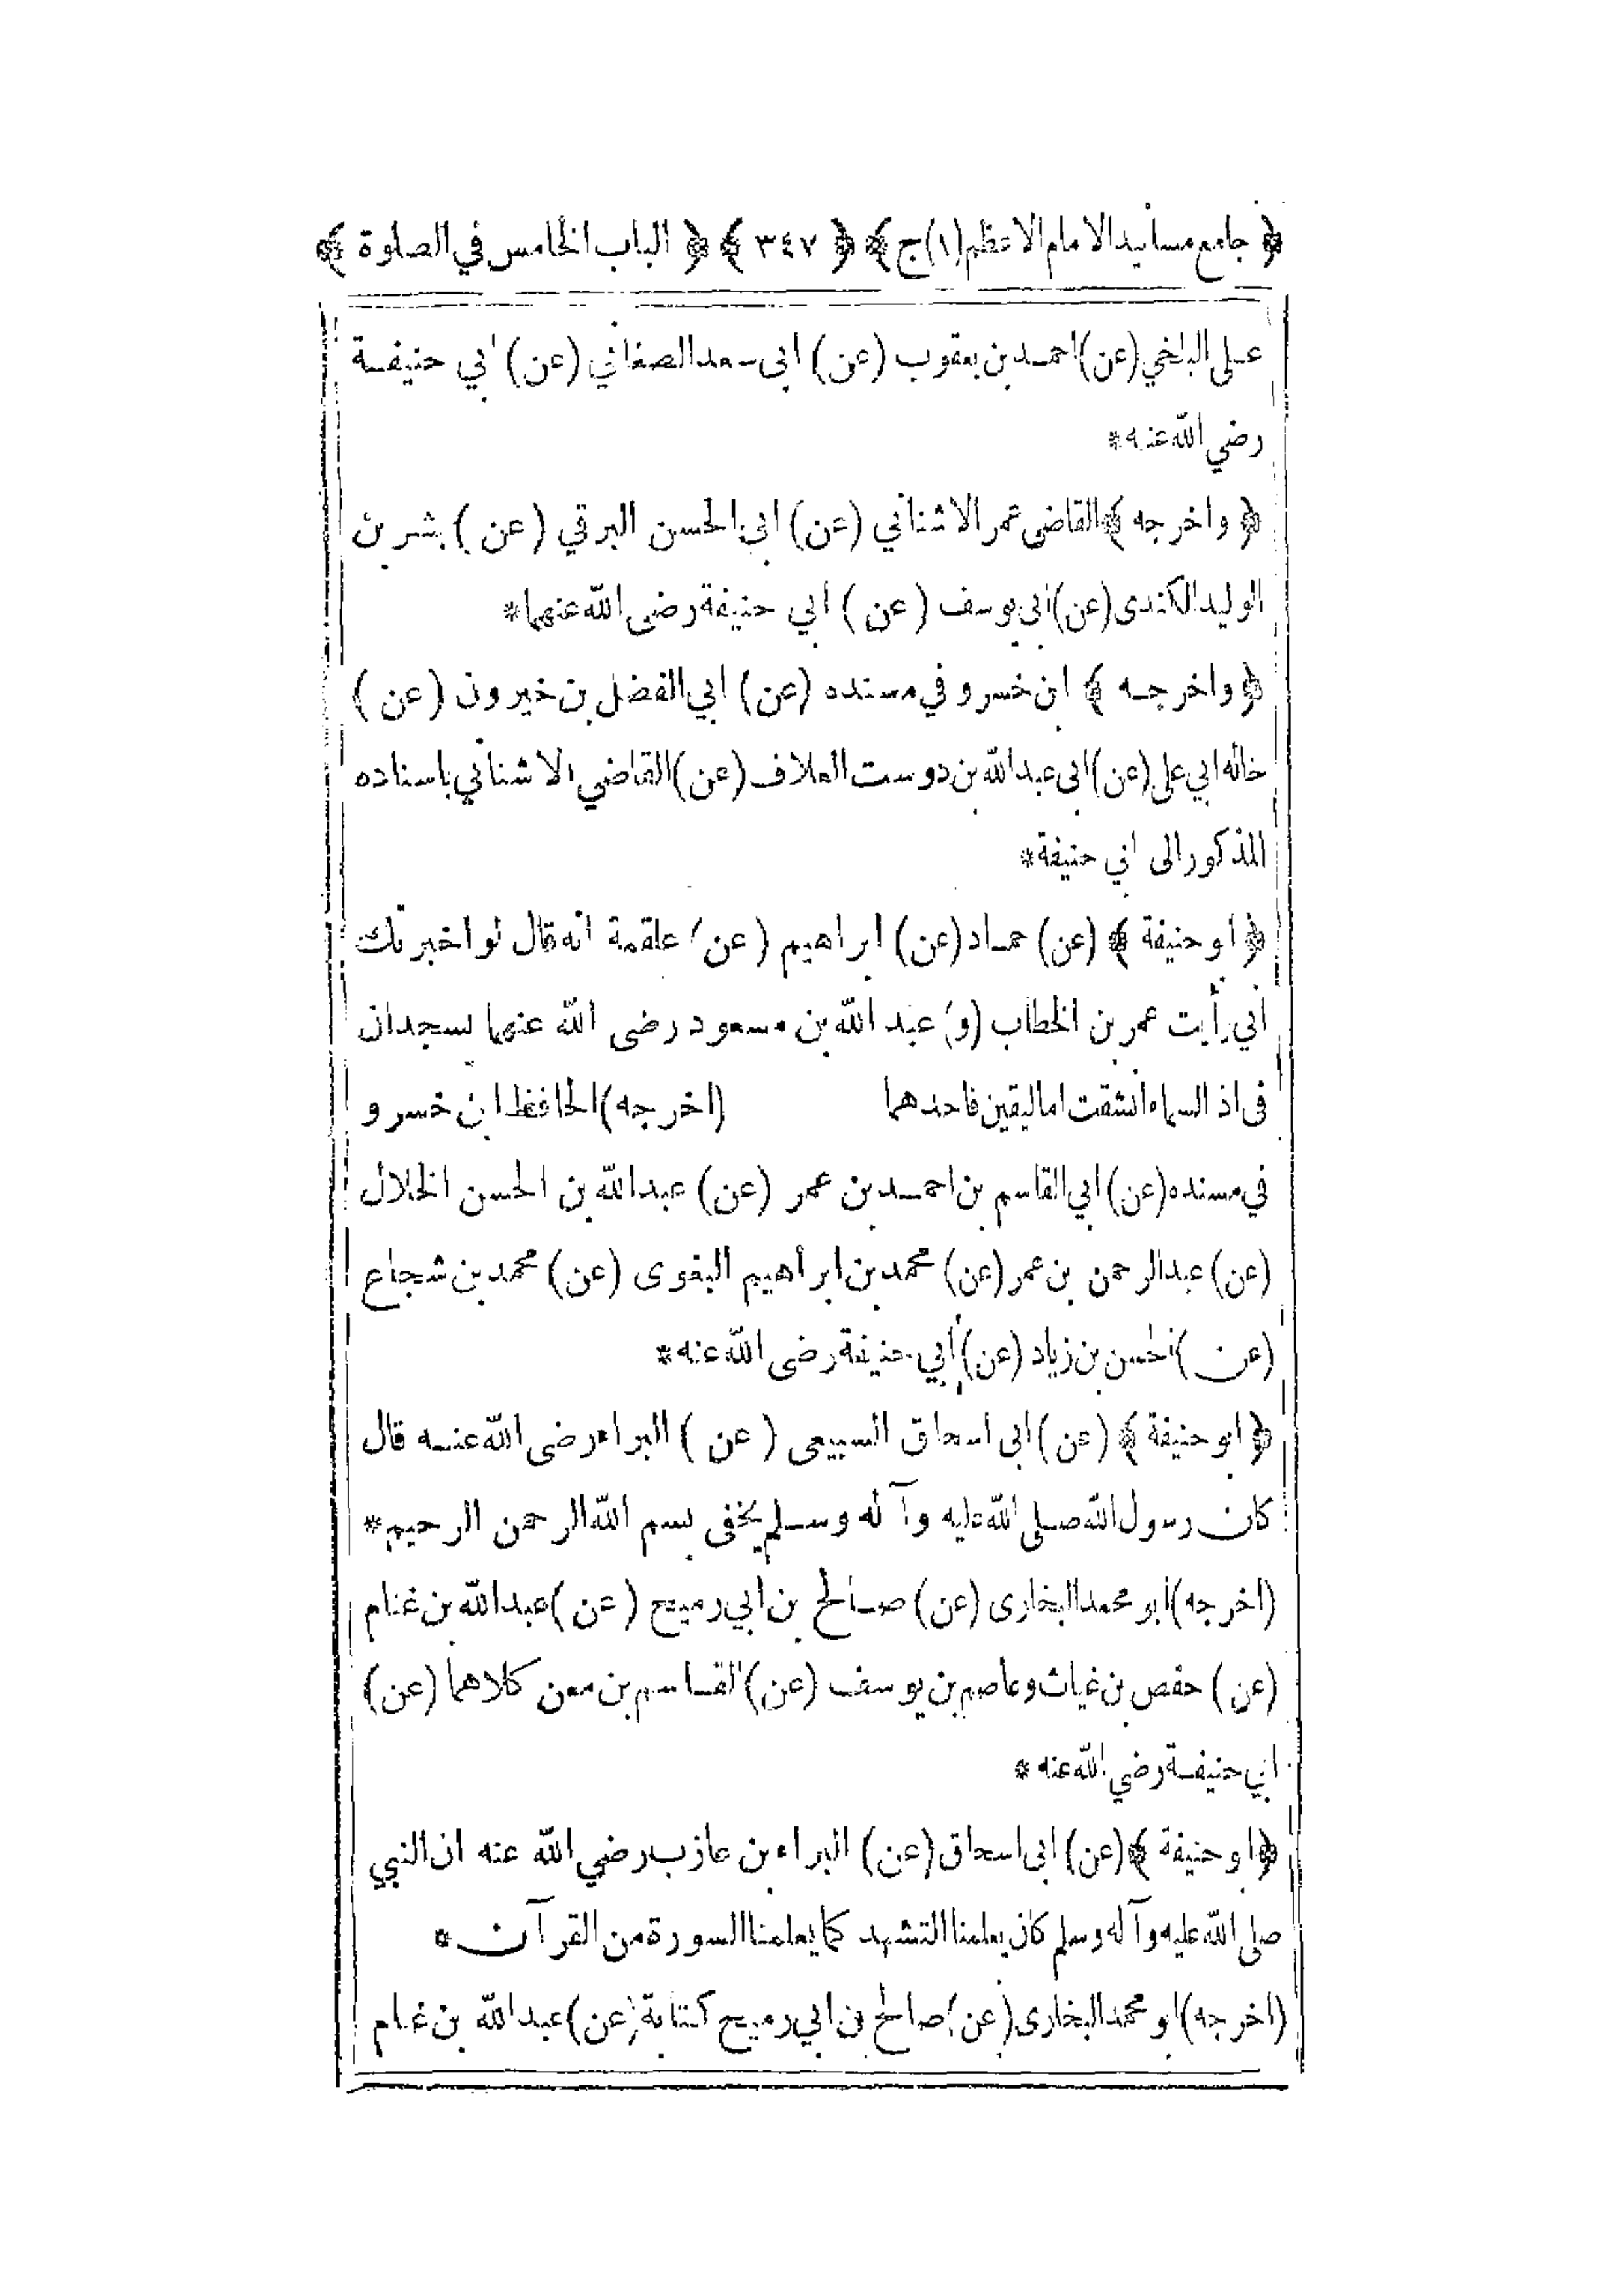 ﴿ جامع مسانيد الامام الاعظم (١) ج ﴾ ﴿ ٣٤٧ ﴾ ﴿ الباب الخامس في الصلوة ﴾
على البلخي (عن) احمد بن يعقوب (عن) ابى سعد الصغاني (عن) ابي حنيفة
رضي الله عنه *
﴿ واخرجه ﴾ القاضى عمر الاشناني (عن) ابى الحسن البرقي (عن) بشر بن
الوليد الكندى (عن) ابى يوسف (عن) ابي حنيفة رضى الله عنهما *
﴿ واخرجه ﴾ ابن خسرو في مسنده (عن) ابي الفضل بن خيرون (عن)
خاله ابي على (عن) ابى عبد الله بن دوست العلاف (عن) القاضي الاشناني باسناده
المذكور الى ابي حنيفة *
﴿ ابو حنيفة ﴾ (عن) حماد (عن) ابراهيم (عن) علقمة انه قال لو اخبرتك
انى رأيت عمر بن الخطاب (و) عبد الله بن مسعود رضى الله عنهما يسجدان
فى اذ السماء انشقت اما ليقين فاحدهما (اخرجه) الحافظ ابن خسرو
في مسنده (عن) ابي القاسم بن احمد بن عمر (عن) عبد الله بن الحسن الخلال
(عن) عبد الرحمن بن عمر (عن) محمد بن ابراهيم البغوى (عن) محمد بن شجاع
(عن) الحسن بن زياد (عن) أبي حنيفة رضى الله عنه *
﴿ ابو حنيفة ﴾ (عن) ابى اسحاق السبيعى (عن) البراء رضى الله عنه قال
كان رسول الله صلى الله عليه وآله وسلم يخفى بسم الله الرحمن الرحيم *
(اخرجه) ابو محمد البخارى (عن) صالح بن ابي رميح (عن) عبد الله بن غنام
(عن) حفص بن غياث وعاصم بن يوسف (عن) القاسم بن معن كلاهما (عن)
ابي حنيفة رضي الله عنه *
﴿ ابو حنيفة ﴾ (عن) ابى اسحاق (عن) البراء بن عازب رضي الله عنه ان النبي
صلى الله عليه وآله وسلم كان يعلمنا التشهد كما يعلمنا السورة من القرآن *
(اخرجه) ابو محمد البخارى (عن) صالح بن ابي رميح كتابة (عن) عبد الله بن غنام